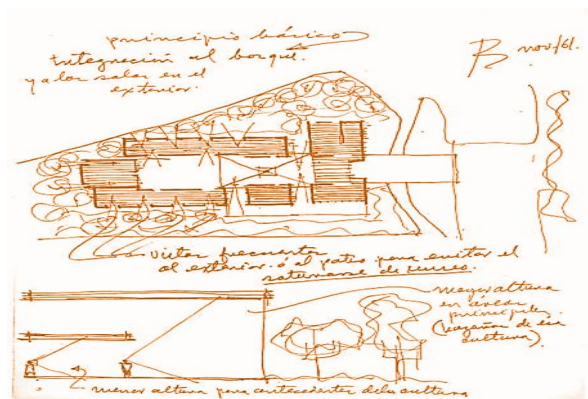 principio básico
Integración al bosque.
y a las salas en el
exterior.
nov/61.
vistas frecuentes
al exterior. ó al patio para evitar el
saturarse de museo.
mayor altura
en áreas
principales.
(hazañas de esa
cultura).
menor altura para antecedentes de la cultura